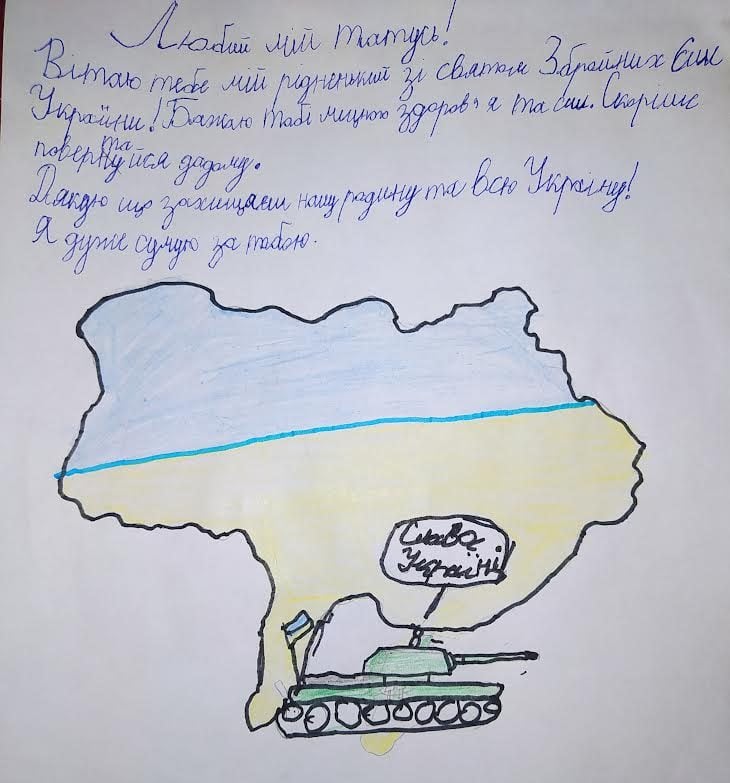 Любий мій татусь!
Вітаю тебе мій рідненький зі святом Збройних Сил
України! Бажаю тобі міцного здоров'я та сил. Скоріше
та
повернуйся дадому.
Дякую що захищаєш нашу родину та всю Україну!
Я дуже сумую за тобою.
Слава
Україні!